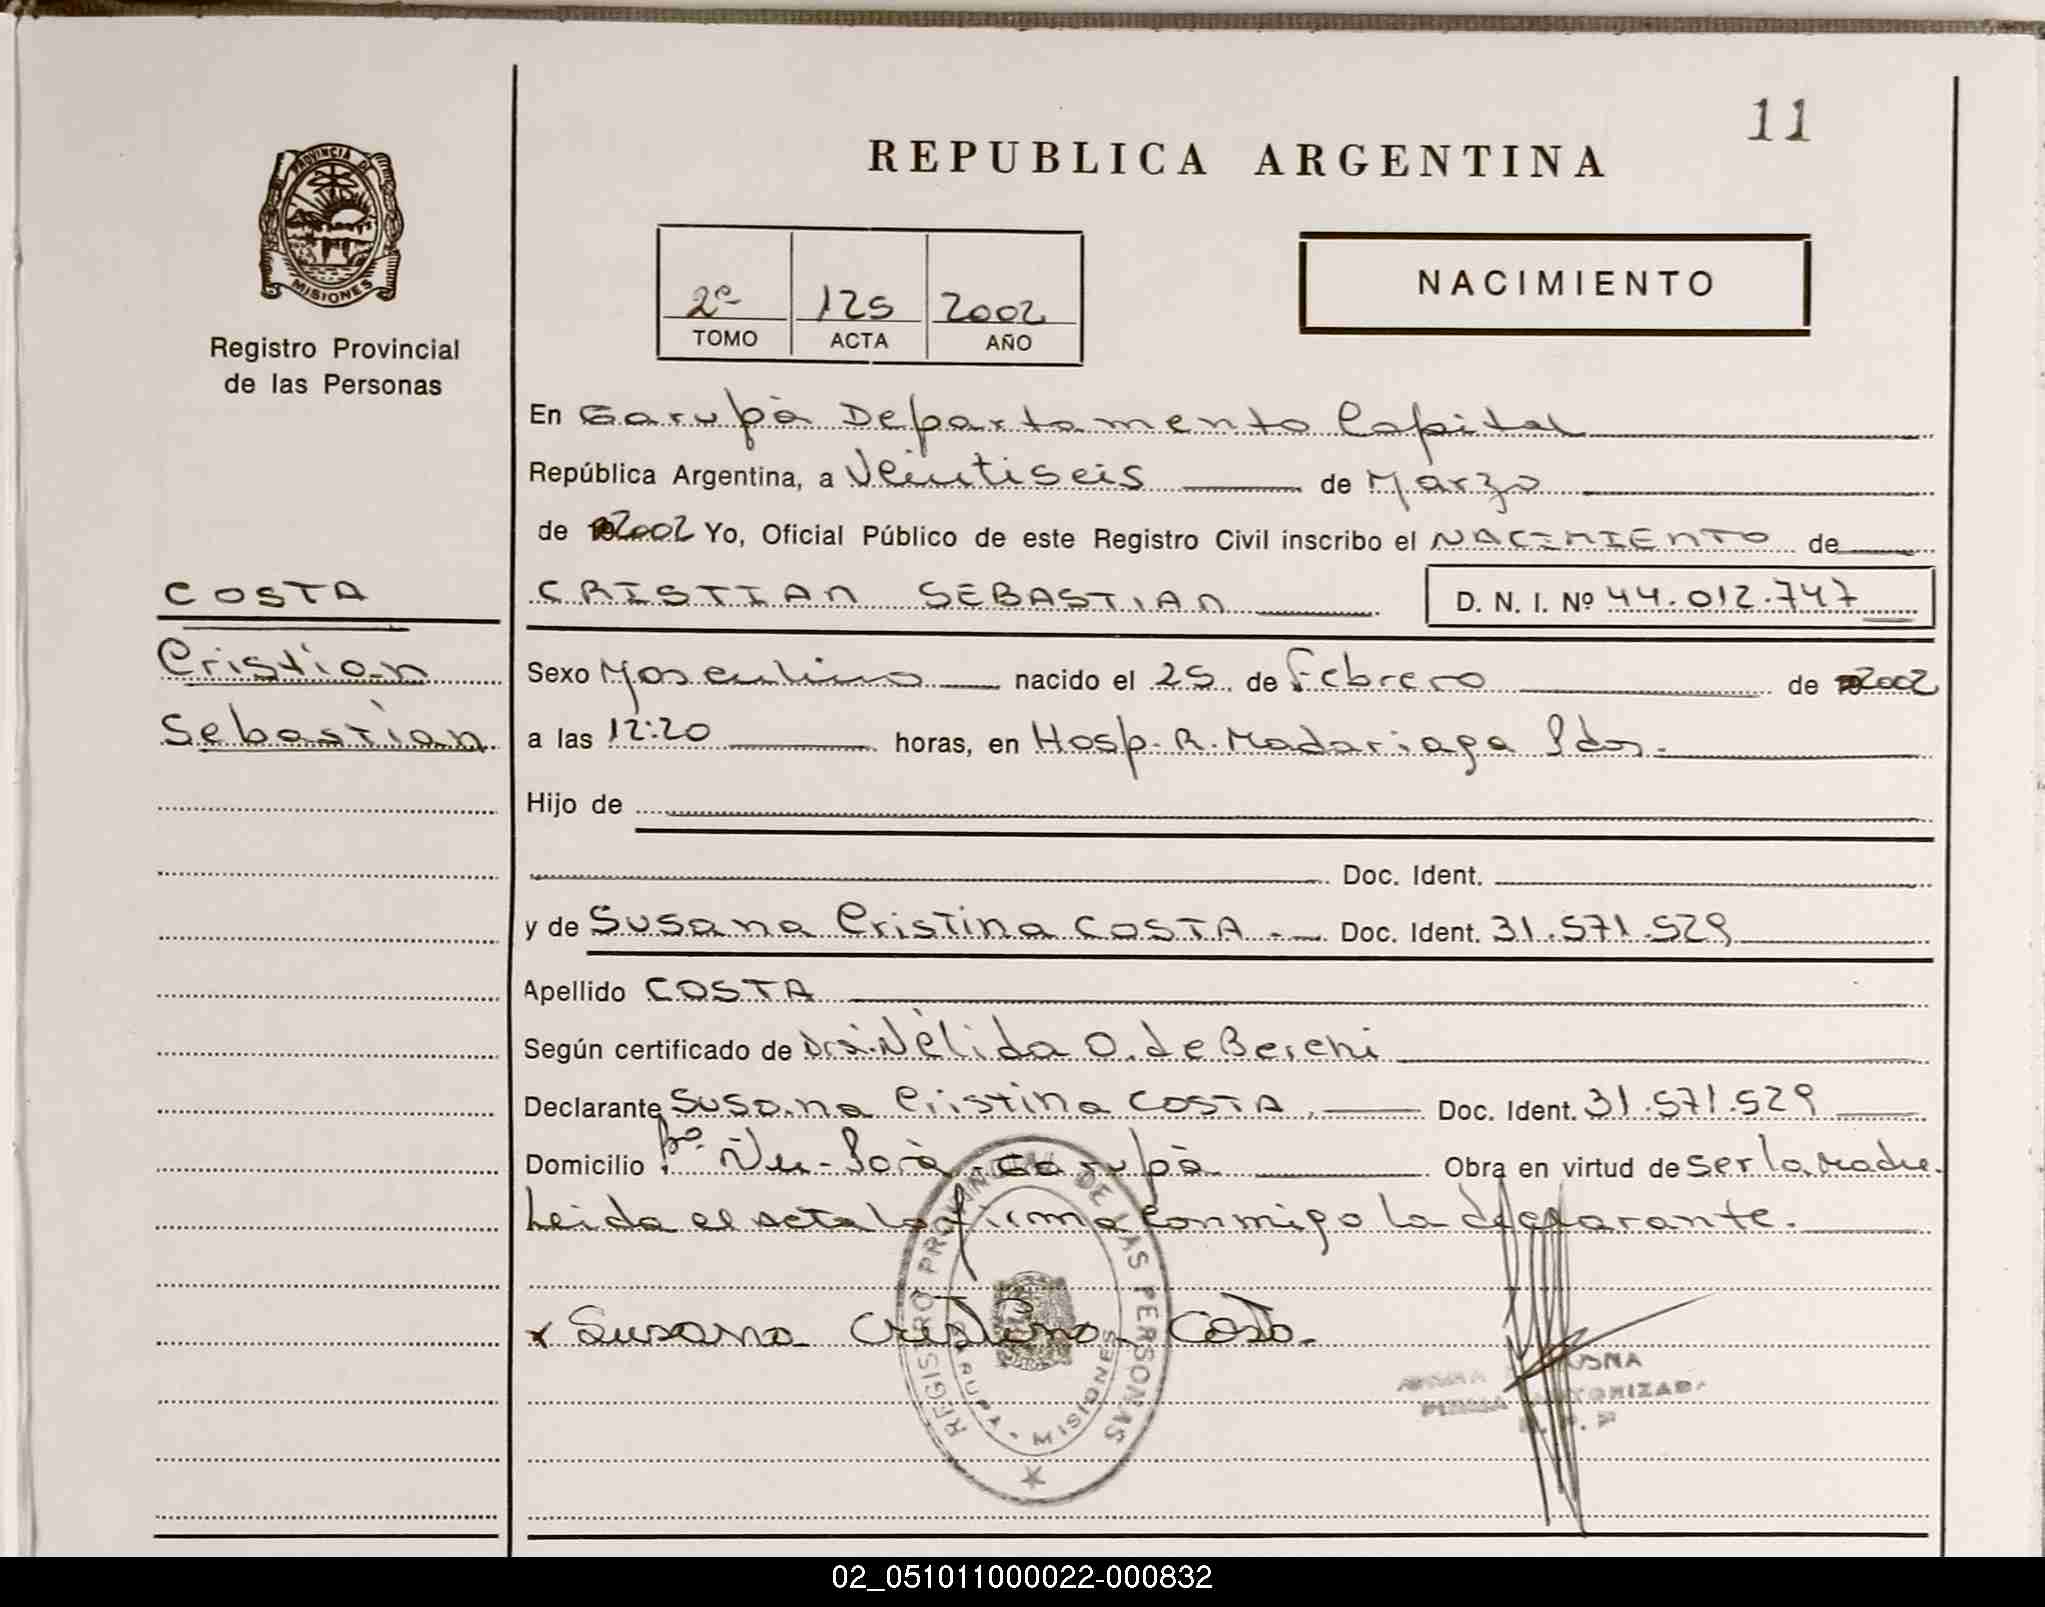 11
REPUBLICA ARGENTINA
PROVINCIA DE
MISIONES
Registro Provincial
de las Personas
2º 125 2002
TOMO ACTA AÑO
NACIMIENTO
En Garupà Departamento Capital
República Argentina, a Veintiseis de Marzo
de 2002 Yo, Oficial Público de este Registro Civil inscribo el NACIMIENTO de
COSTA
CRISTIAN SEBASTIAN D. N. I. Nº 44.012.747
Cristian
Sexo Masculino nacido el 25 de Febrero de 2002
Sebastian
a las 12:20 horas, en Hosp. R. Madariaga Pdas.
Hijo de
Doc. Ident.
y de Susana Cristina COSTA.- Doc. Ident. 31.571.529
Apellido COSTA
Según certificado de Dra. Nélida O. de
Declarante Susana Cristina COSTA, Doc. Ident. 31.571.529
Domicilio Bº. Ñu-Porà-Garupà Obra en virtud de ser la madre.
Leida el acta la firma conmigo la declarante.
x Susana Cristina Costa.
REGISTRO PROVINCIAL DE LAS PERSONAS
GARUPA - MISIONES
FIRMA AUTORIZADA
R. P. P
02_051011000022-000832